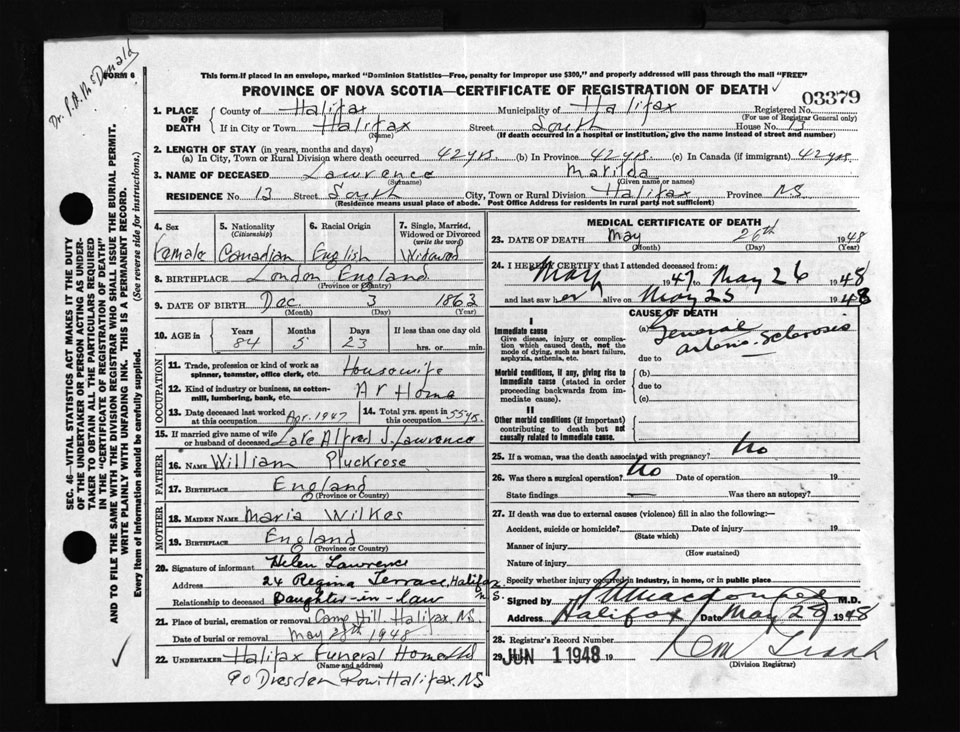 Dr. P.A. McDonald
FORM 6
SEC. 46—VITAL STATISTICS ACT MAKES IT THE DUTY
OF THE UNDERTAKER OR PERSON ACTING AS UNDER-
TAKER TO OBTAIN ALL THE PARTICULARS REQUIRED
IN THE "CERTIFICATE OF REGISTRATION OF DEATH"
AND TO FILE THE SAME WITH THE DIVISION REGISTRAR WHO SHALL ISSUE THE BURIAL PERMIT.
WRITE PLAINLY WITH UNFADING INK. THIS IS A PERMANENT RECORD.
Every item of information should be carefully supplied. (See reverse side for instructions.)
This form if placed in an envelope, marked "Dominion Statistics—Free, penalty for improper use $300," and properly addressed will pass through the mail "FREE"
PROVINCE OF NOVA SCOTIA—CERTIFICATE OF REGISTRATION OF DEATH
03379
1. PLACE OF DEATH { County of Halifax Municipality of Halifax Registered No.
(For use of Registrar General only)
If in City or Town Halifax Street South House No. 13
(Name) (If death occurred in a hospital or institution, give the name instead of street and number)
2. LENGTH OF STAY (in years, months and days)
(a) In City, Town or Rural Division where death occurred 42 yrs. (b) In Province 42 yrs. (c) In Canada (if immigrant) 42 yrs.
3. NAME OF DECEASED Lawrence Matilda
(Surname) (Given name or names)
RESIDENCE No. 13 Street South City, Town or Rural Division Halifax Province NS.
(Residence means usual place of abode. Post Office Address for residents in rural parts not sufficient)
4. Sex Female
5. Nationality (Citizenship) Canadian
6. Racial Origin English
7. Single, Married, Widowed or Divorced (write the word) Widowed
8. BIRTHPLACE London England
(Province or Country)
9. DATE OF BIRTH Dec. 3 1863
(Month) (Day) (Year)
10. AGE in { Years 84 Months 5 Days 23 If less than one day old
hrs. or min.
OCCUPATION
11. Trade, profession or kind of work as spinner, teamster, office clerk, etc. Housewife
12. Kind of industry or business, as cotton-mill, lumbering, bank, etc. At Home
13. Date deceased last worked at this occupation Apr. 1947 14. Total yrs. spent in this occupation 55 yrs.
15. If married give name of wife or husband of deceased Late Alfred J. Lawrence
FATHER
16. NAME William Pluckrose
17. BIRTHPLACE England
(Province or Country)
MOTHER
18. MAIDEN NAME Maria Wilkes
19. BIRTHPLACE England
(Province or Country)
20. Signature of informant Helen Lawrence
Address 24 Regina Terrace, Halifax N.S.
Relationship to deceased Daughter-in-law
21. Place of burial, cremation or removal Camp Hill. Halifax, NS.
Date of burial or removal May 28th 1948
22. UNDERTAKER Halifax Funeral Home Ltd
(Name and address)
90 Dresden Row Halifax. NS
MEDICAL CERTIFICATE OF DEATH
23. DATE OF DEATH May 26th 1948
(Month) (Day) (Year)
24. I HEREBY CERTIFY that I attended deceased from:
May 1947 to May 26 1948
and last saw her alive on May 25 1948
CAUSE OF DEATH
I
Immediate cause
Give disease, injury or complication which caused death, not the mode of dying, such as heart failure, asphyxia, asthenia, etc.
(a) General arterio-sclerosis
due to
Morbid conditions, if any, giving rise to immediate cause (stated in order proceeding backwards from immediate cause).
(b)
due to
(c)
II
Other morbid conditions (if important) contributing to death but not causally related to immediate cause.
25. If a woman, was the death associated with pregnancy? No
26. Was there a surgical operation? No Date of operation 19
State findings — Was there an autopsy?
27. If death was due to external causes (violence) fill in also the following:—
Accident, suicide or homicide? Date of injury 19
(State which)
Manner of injury
(How sustained)
Nature of injury
Specify whether injury occurred in industry, in home, or in public place
Signed by M.D.
Address Halifax Date May 28 1948
28. Registrar's Record Number
29. JUN 1 1948 19
(Division Registrar)